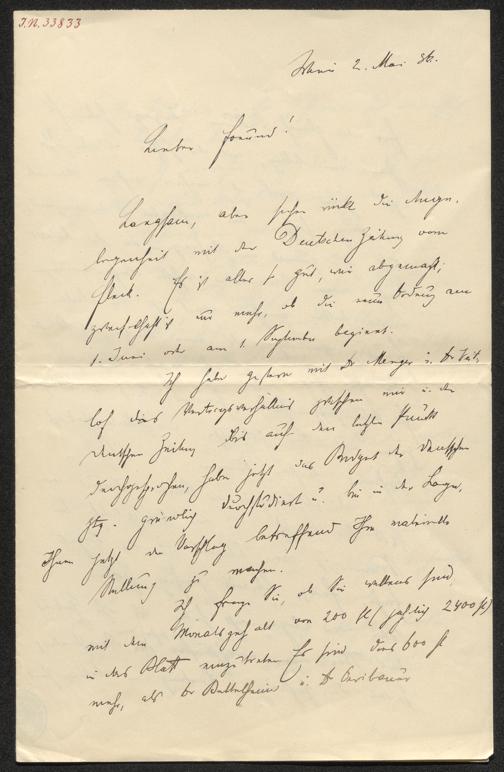 I.N. 33833
Wien 2. Mai 86.
Lieber Freund!
Langsam, aber sicher rückt die Ange-
legenheit mit der Deutschen Zeitung vom
Fleck. Es ist alles so gut, wie abgemacht;
zweifelhaft ist nur mehr, ob die neue Ordnung am
1. Juni oder am 1. September beginnt.
Ich habe gestern mit Dr Menger u. Dr
lof das Vertragsverhältnis zwischen mir u. der
Deutschen Zeitung bis auf den letzten Punkt
durchgesprochen, habe jetzt das Budget der Deutschen
Ztg. gründlich durchstudiert u. bin in der Lage,
Ihnen jetzt den Vorschlag betreffend Ihre materielle
Stellung zu machen.
Ich frage Sie, ob Sie willens sind,
mit dem Monatsgehalt von 200 fl (jährlich 2400 fl)
in das Blatt einzutreten. Es sind das 600 fl
mehr, als Dr Bettelheim u. Dr